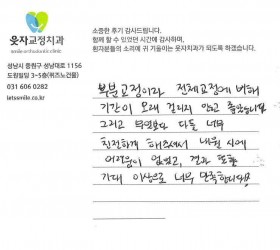 웃자교정치과
smile orthodontic clinic
성남시 중원구 성남대로 1156
도림빌딩 3~5층(위즈노건물)
031 606 0282
letssmile.co.kr
소중한 후기 감사드립니다.
함께 할 수 있었던 시간에 감사하며,
환자분들의 소리에 귀 기울이는 웃자교정치과가 되도록 하겠습니다.
부분교정이라 전체교정에 비해
기간이 오래 걸리지 않고 좋았습니다
그리고 무엇보다 다들 너무
친절하게 해주셔서 내원 시에
어려움이 없었고, 결과 또한
기대 이상으로 너무 만족합니다!